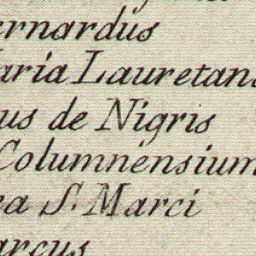 ernardus
aria Lauretana
us de Nigris
Columnensium
ea S. Marci
arcus